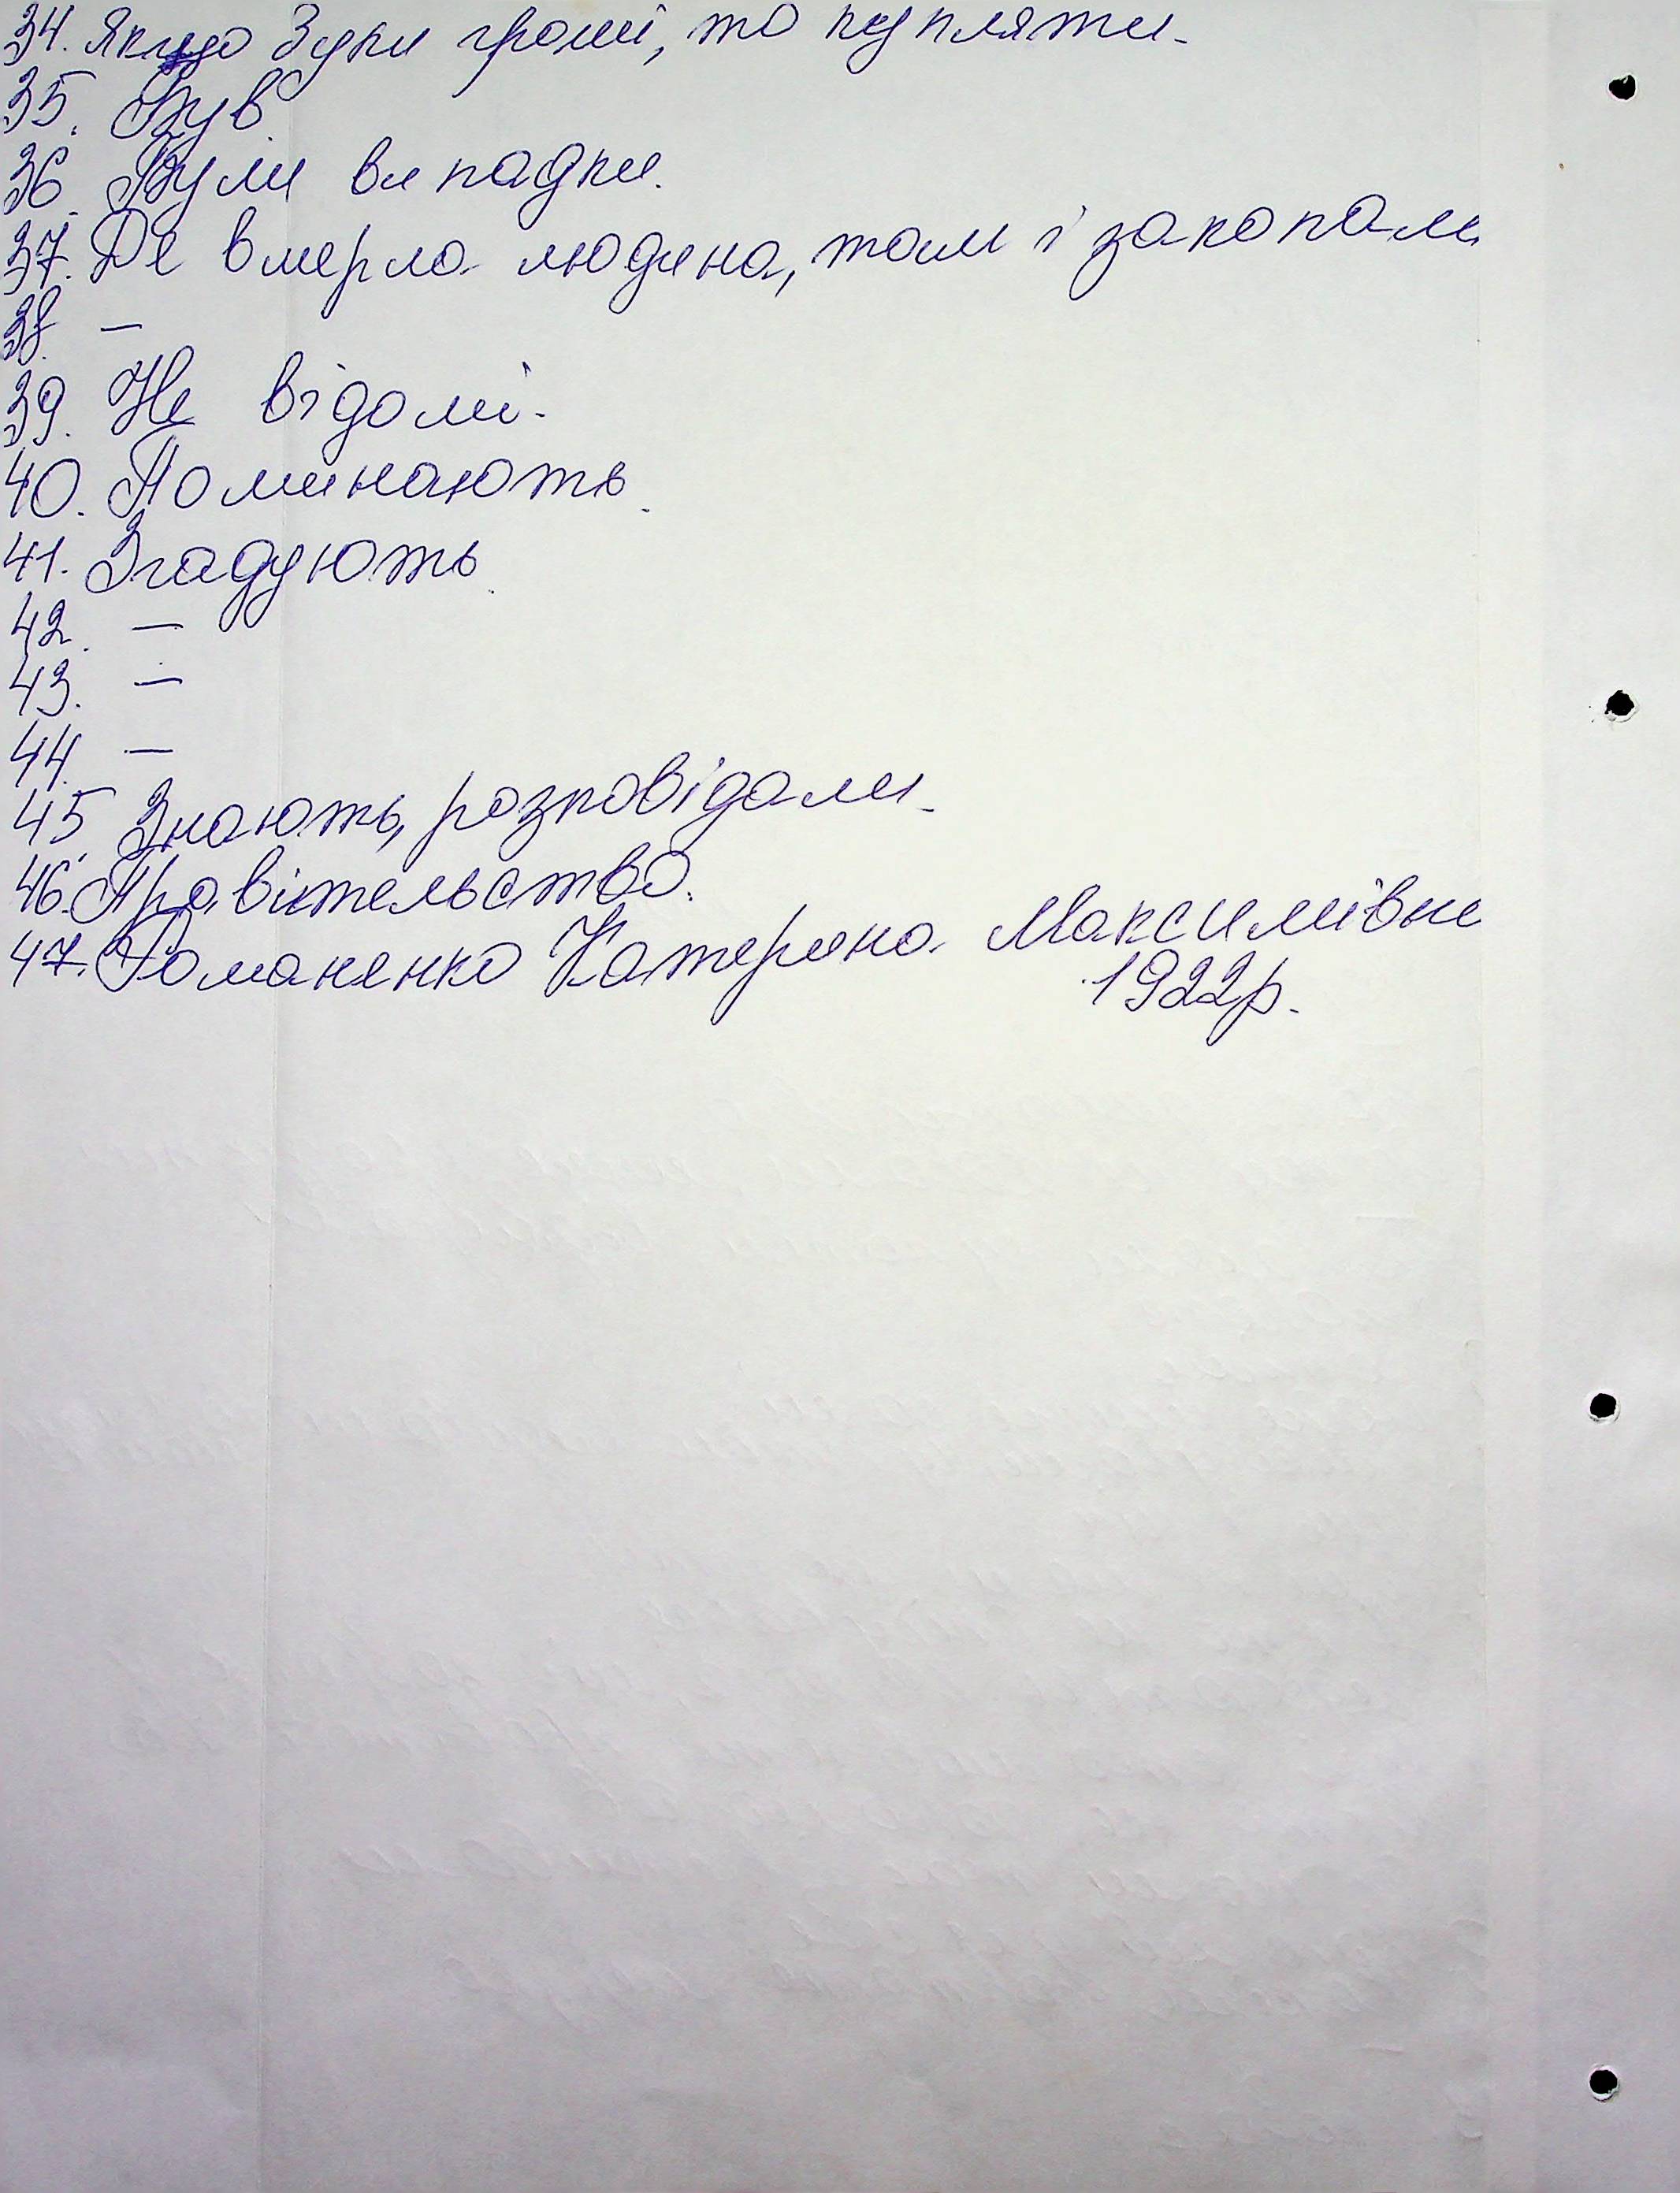 34. Якщо Зуки гроші, то купляти.
35. Був.
36. Були випадки.
37. Де вмерла людина, там і закопали
38. —
39. Не відомі.
40. Поминають.
41. Згадують.
42. —
43. —
44. —
45. Знають, розповідали.
46. Правітельство.
47. Романенко Катерина Максимівни
1922р.